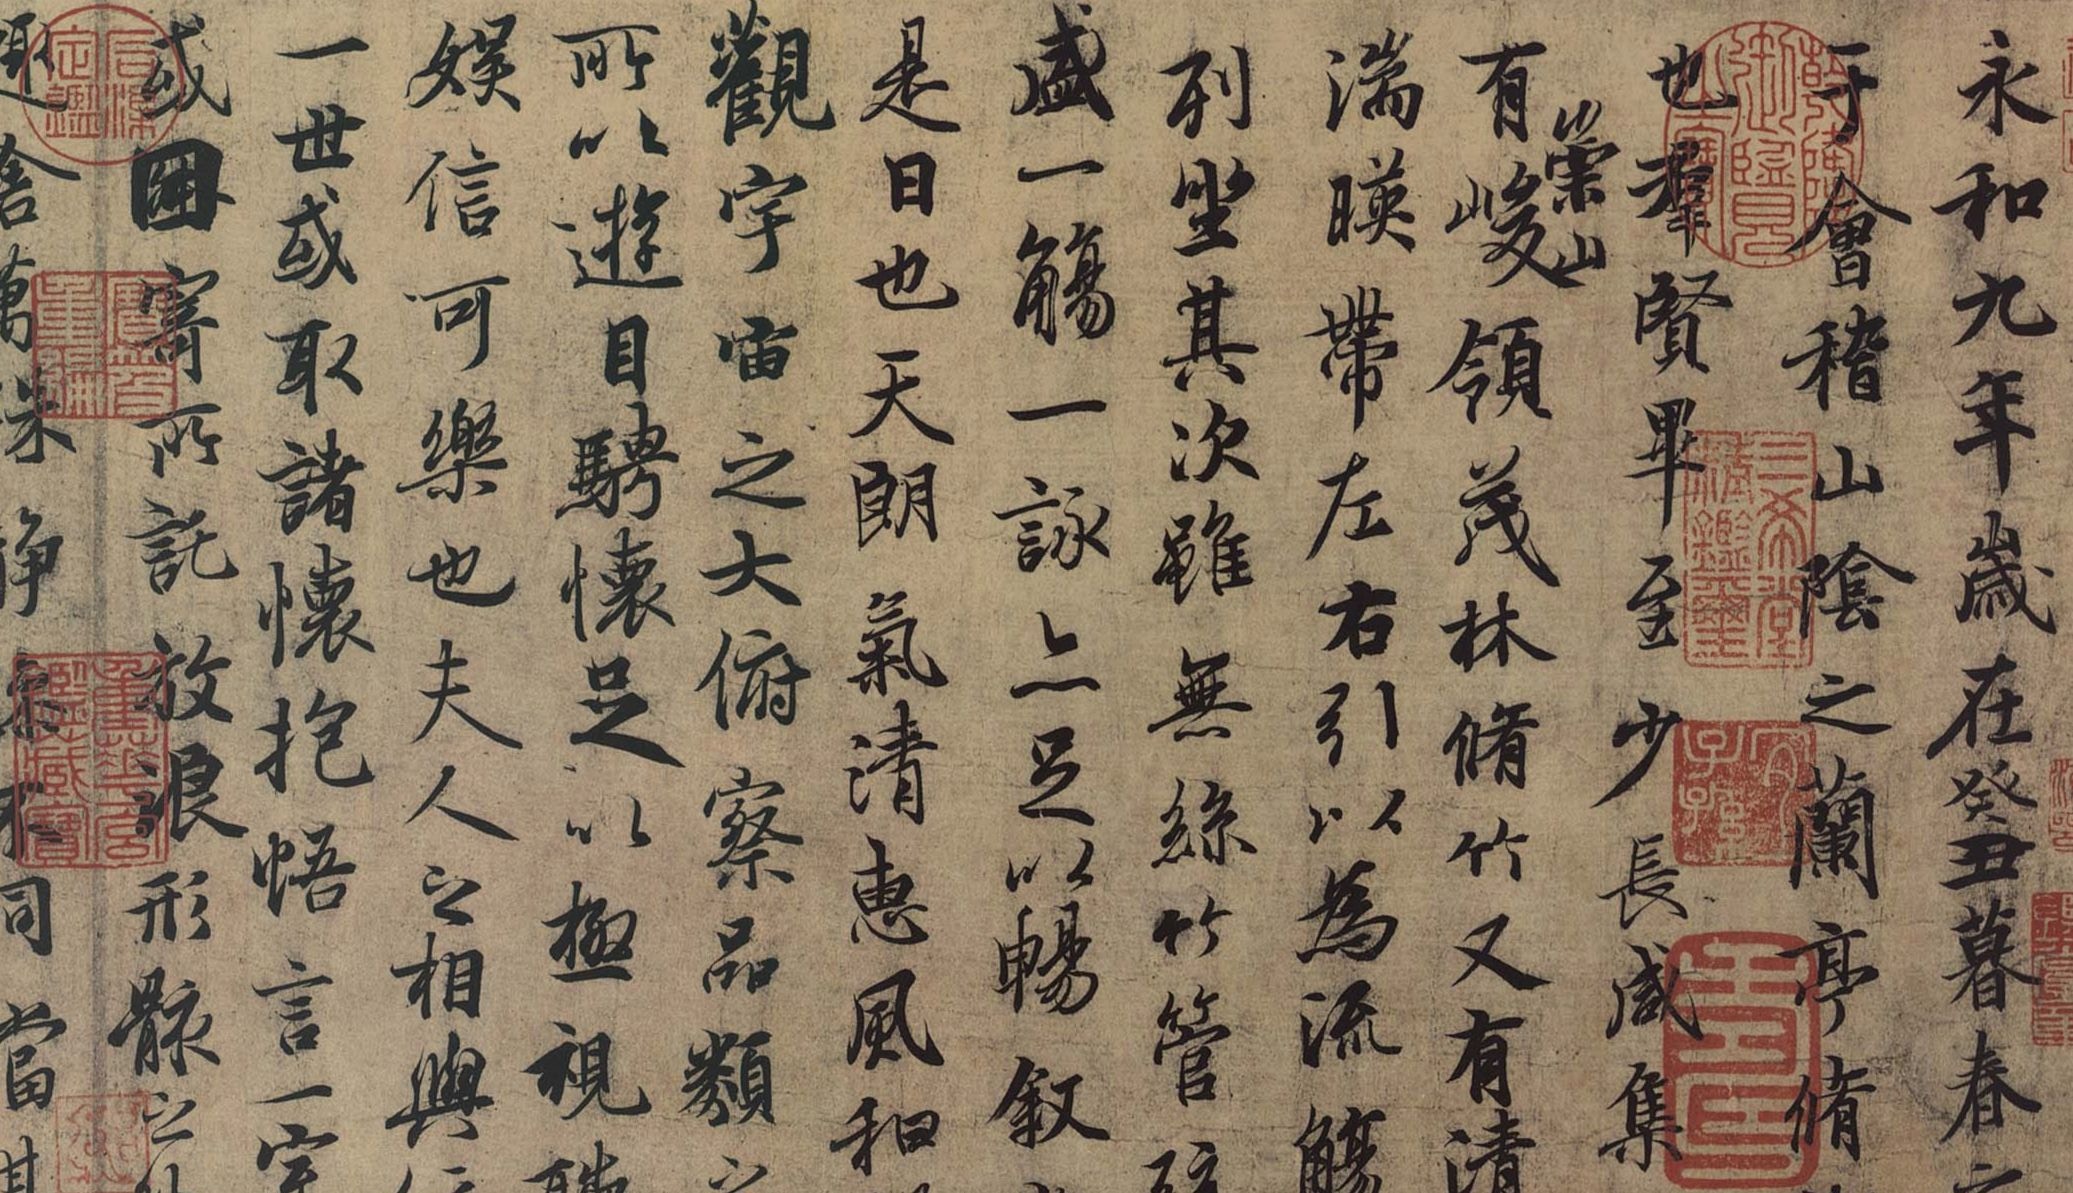 永和九年歲在癸丑暮春
于會稽山陰之蘭亭脩
也羣賢畢至少長咸集
崇山
有峻領茂林脩竹又有清
湍暎帶左右引以為流觴
列坐其次雖無絲竹管
盛一觴一詠亦足以暢叙
是日也天朗氣清惠風和
觀宇宙之大俯察品類之
所以遊目騁懷足以極視聽
娛信可樂也夫人之相與
一世或取諸懷抱悟言一室
或因寄所託放浪形骸之
趣舍萬殊靜躁不同當其
三希堂精鑑璽
宜子孫
石渠定鑑
寶笈重編
重華宮鑑藏寶